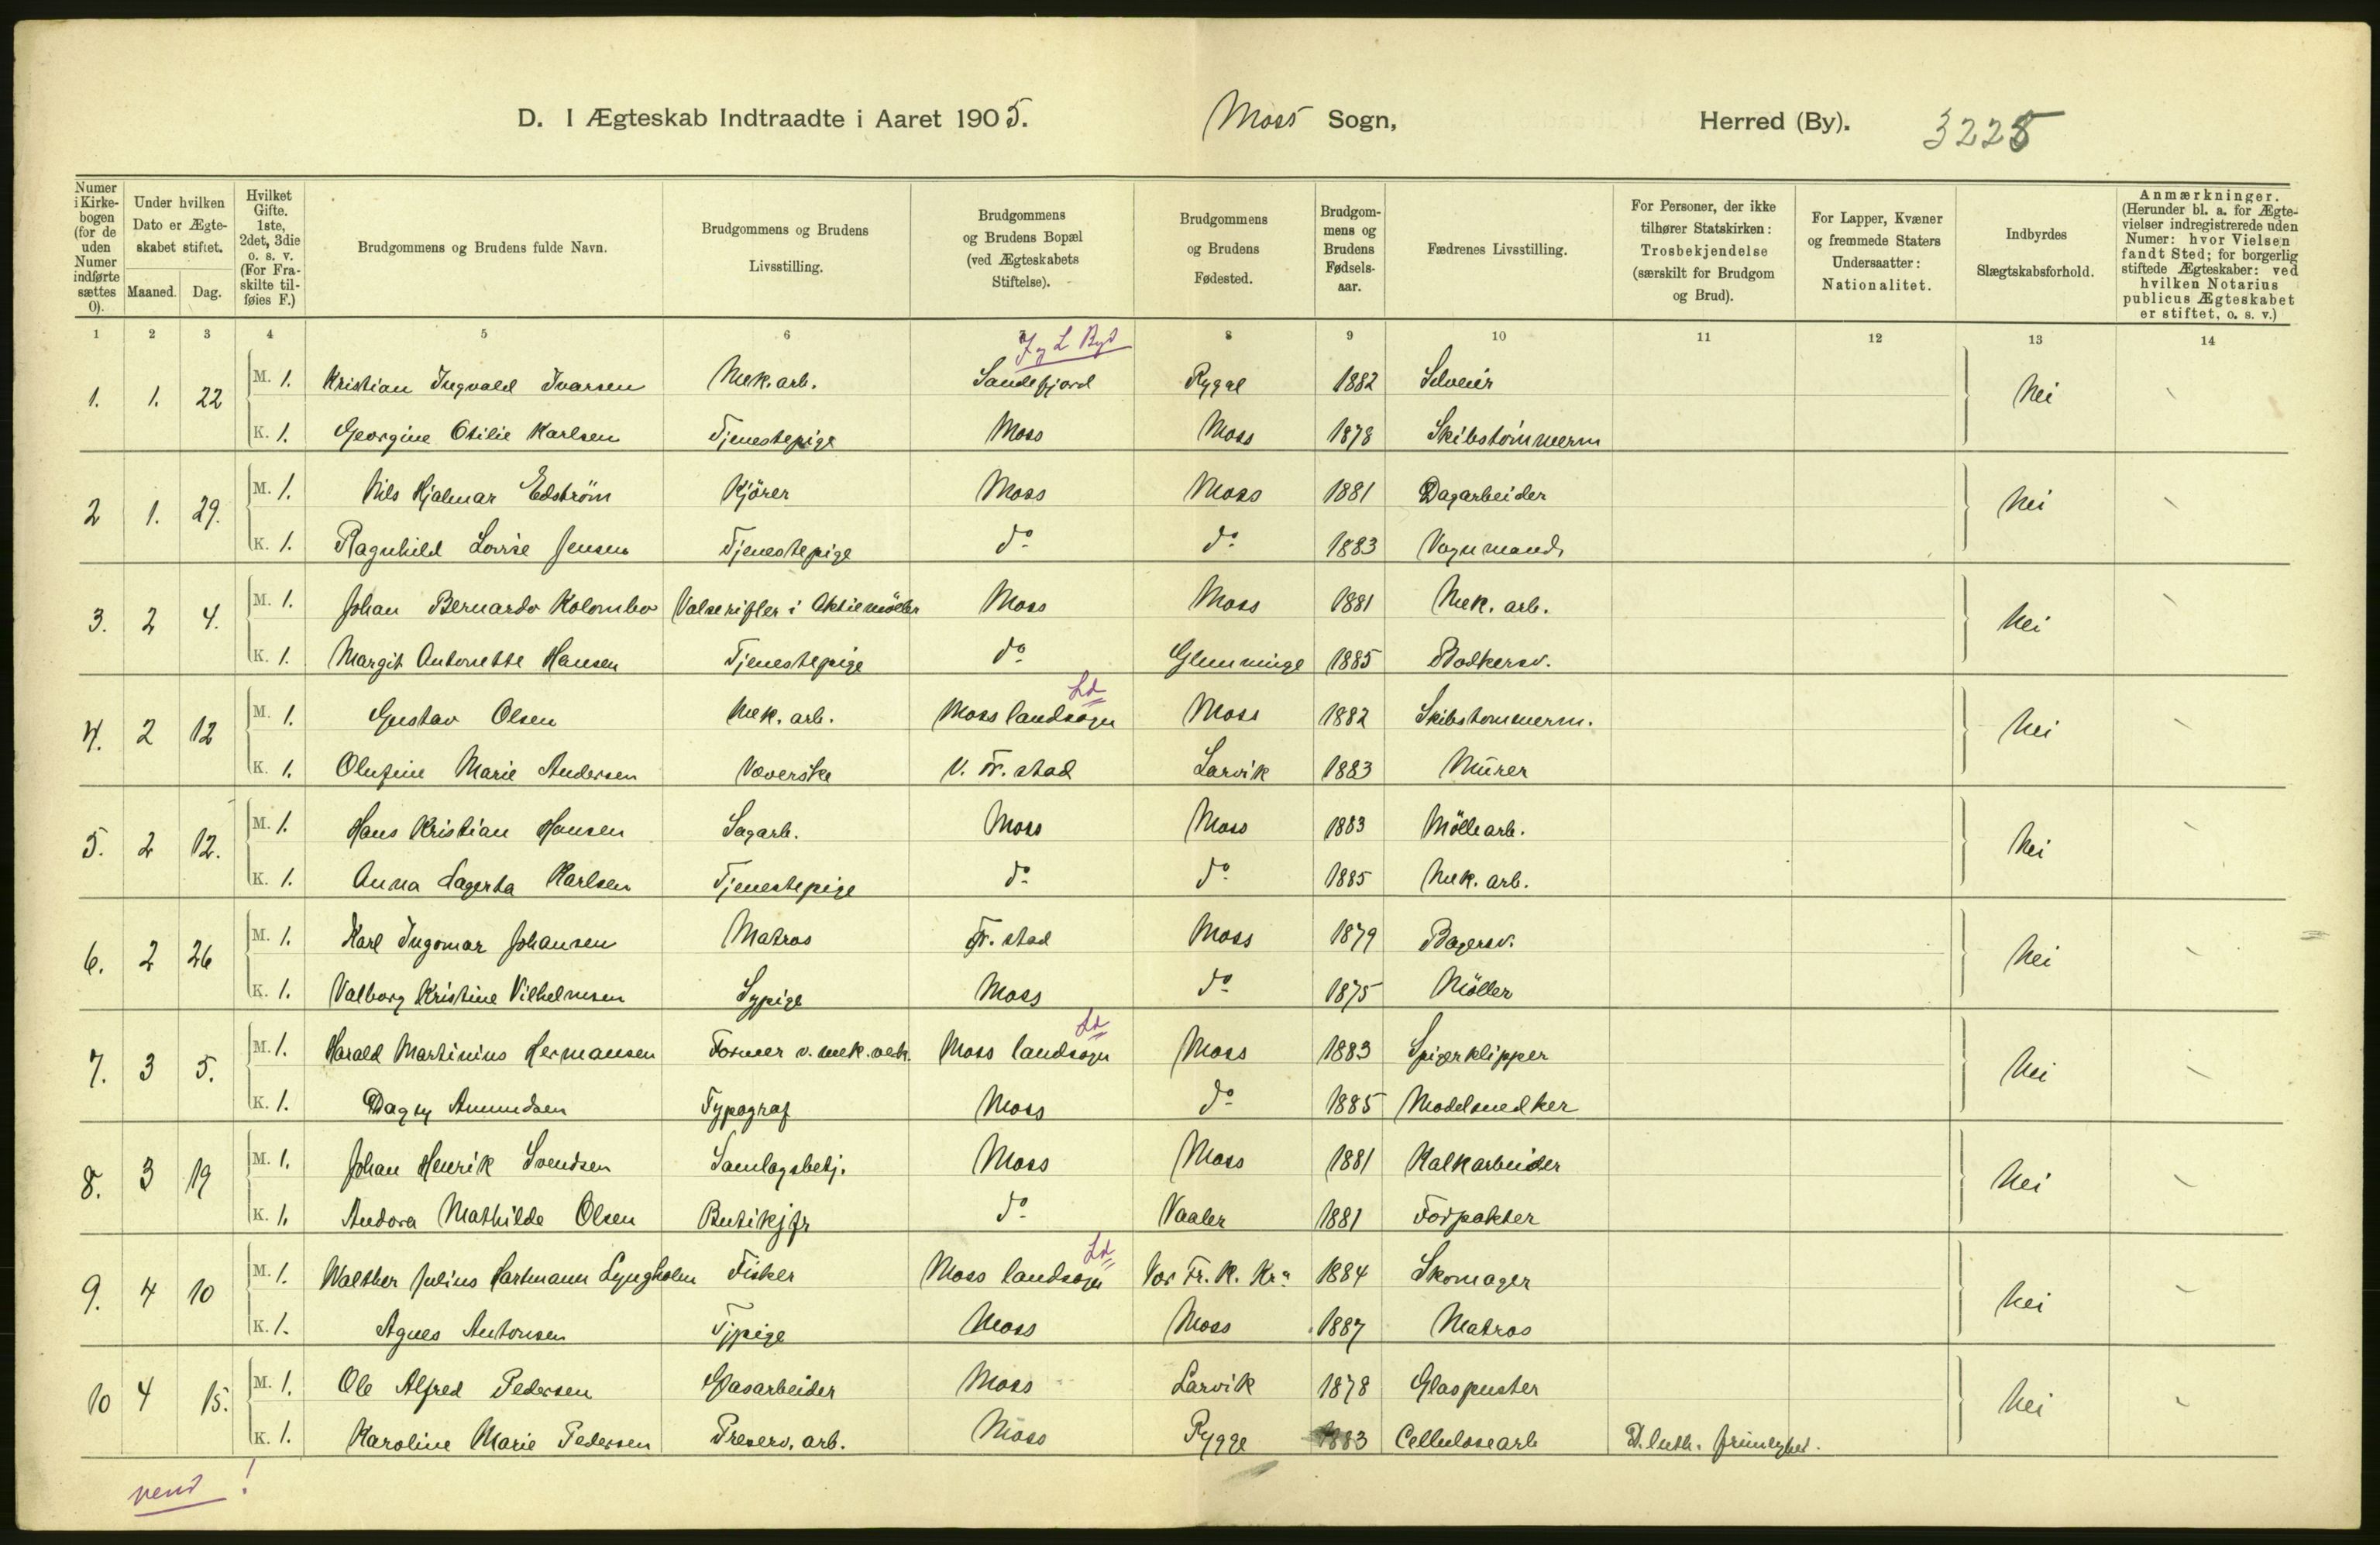 D. I Ægteskab Indtraadte i Aaret 1905. Moss Sogn, Herred (By). 3225
Numer i Kirkebogen (for de uden Numer indførte sættes 0).
Under hvilken Dato er Ægteskabet stiftet.
Maaned. Dag.
Hvilket Gifte. 1ste, 2det, 3die o. s. v. (For Fraskilte tilføies F.)
Brudgommens og Brudens fulde Navn.
Brudgommens og Brudens Livsstilling.
Brudgommens og Brudens Bopæl (ved Ægteskabets Stiftelse).
Brudgommens og Brudens Fødested.
Brudgommens og Brudens Fødselsaar.
Fædrenes Livsstilling.
For Personer, der ikke tilhører Statskirken: Trosbekjendelse (særskilt for Brudgom og Brud).
For Lapper, Kvæner og fremmede Staters Undersaatter: Nationalitet.
Indbyrdes Slægtskabsforhold.
Anmærkninger. (Herunder bl. a. for Ægtevielser indregistrerede uden Numer: hvor Vielsen fandt Sted; for borgerlig stiftede Ægteskaber: ved hvilken Notarius publicus Ægteskabet er stiftet, o. s. v.)
1 2 3 4 5 6 7 8 9 10 11 12 13 14
1. 1. 22 M. 1. Kristian Ingvald Ivarsen Mek. arb. Sandefjord Rygge 1882 Selveier Nei
K. 1. Georgine Otilie Karlsen Tjenestepige Moss Moss 1878 Skibstömmerm
2 1. 29. M. 1. Nils Hjalmar Edström Kjörer Moss Moss 1881 Dagarbeider Nei
K. 1. Ragnhild Lovise Jensen Tjenestepige do do 1883 Vognmand
3. 2 4. M. 1. Johan Bernardo Kolombo Valserifler i Aktiemöller Moss Moss 1881 Mek. arb. Nei
K. 1. Margit Antonette Hansen Tjenestepige do Glemminge 1885 Bödkersv.
4. 2 12 M. 1. Gustav Olsen Mek. arb. Moss landsogn Ld Moss 1882 Skibstommerm. Nei
K. 1. Olufine Marie Andersen Væverske V. Fr. stad Larvik 1883 Murer
5. 2 12. M. 1. Hans Kristian Hansen Sagarb. Moss Moss 1883 Möllearb. Nei
K. 1. Anna Lagerta Karlsen Tjenestepige do do 1885 Mek. arb.
6. 2 26 M. 1. Karl Ingomar Johansen Matros Fr. stad Moss 1879 Bagersv. Nei
K. 1. Valborg Kristine Vilhelmsen Sypige Moss do 1875 Möller
7. 3 5. M. 1. Harald Martinius Hermansen Former v. mek. verk. Moss landsogn Ld Moss 1883 Spigerklipper Nei
K. 1. Dagny Amundsen Typograf Moss do 1885 Modelsnedker
8. 3 19 M. 1. Johan Henrik Svendsen Samlagsbetj. Moss Moss 1881 Kalkarbeider Nei
K. 1. Andora Mathilde Olsen Butikjfr do Vaaler 1881 Forpakter
9. 4 10 M. 1. Walther Julius Hartmann Lyngholm Fisker Moss landsogn Ld Vor Fr. K. Kra 1884 Skomager Nei
K. 1. Agnes Antonsen Tjpige Moss Moss 1887 Matros
10 4 15. M. 1. Ole Alfred Pedersen Glasarbeider Moss Larvik 1878 Glaspuster Nei
K. 1. Karoline Marie Pedersen Preserv. arb. Moss Rygge 1883 Cellulosearb D. luth. frimenighed.
vend!